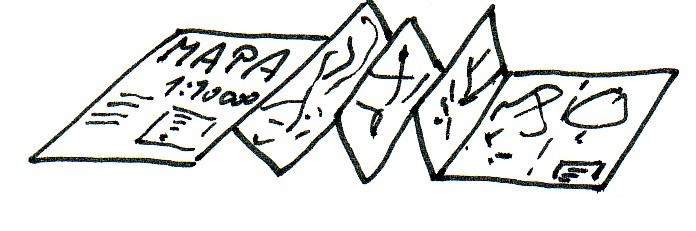 MAPA
1:10000